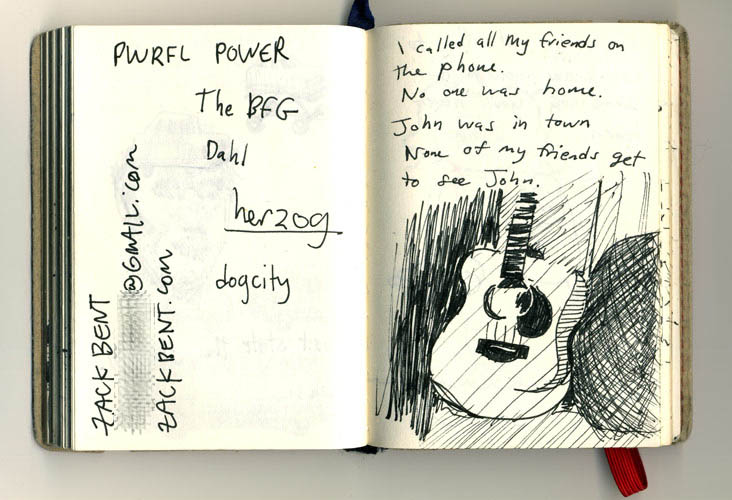 PWRFL POWER
The BFG
Dahl
herzog
dogcity
ZACK BENT
@GMAIL.COM
ZACKBENT.COM
I called all my friends on
the phone.
No one was home.
John was in town
None of my friends get
to see John.